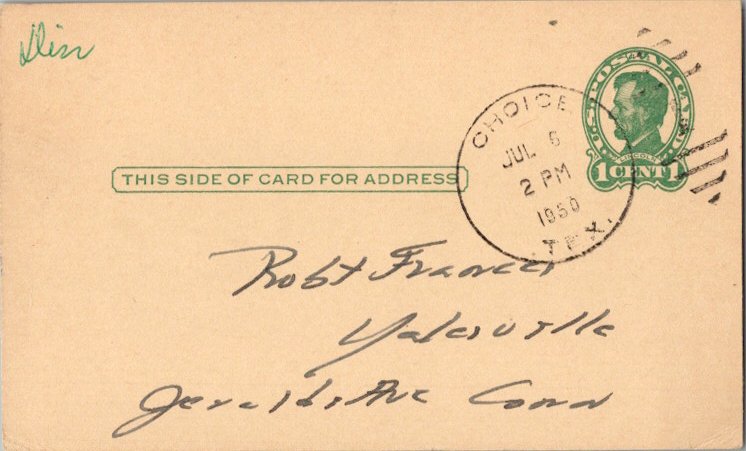 U.S. POSTAL CARD
LINCOLN
1 CENT 1
CHOICE
JUL 6
2 PM
1950
TEX.
THIS SIDE OF CARD FOR ADDRESS
Robt Frances
Yalesville
Geralds Ave Conn